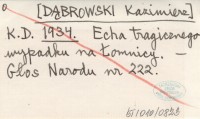 [DĄBROWSKI Kazimierz]
K.D. 1934. Echa tragicznego
wypadku na Łomnicy. –
Głos Narodu nr 222.